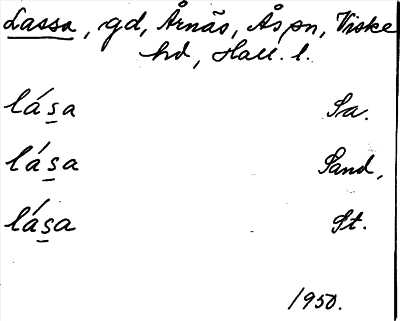 Lassa, gd, Årnäs, Ås sn, Viske
hd, Hall. l.
lása Sa.
lása Sand,
lása St.
1950.